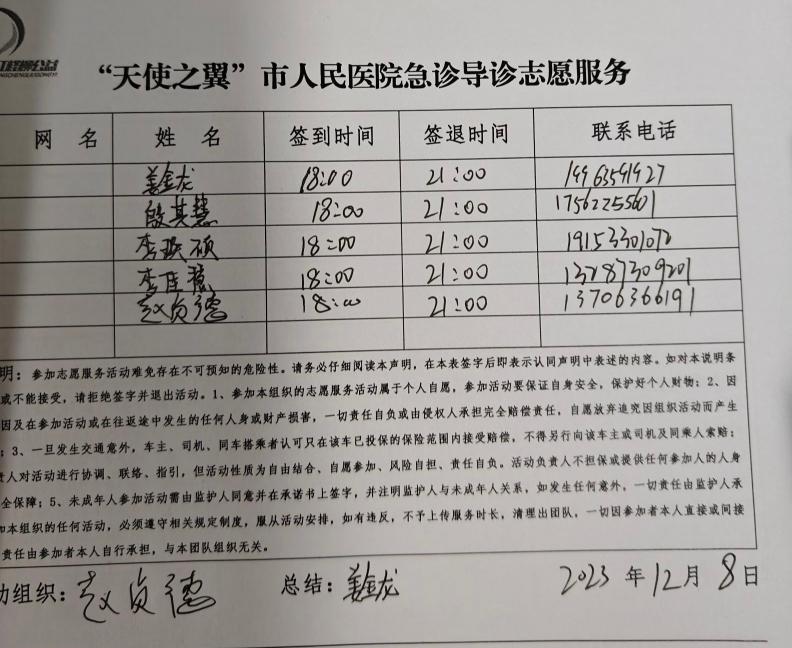 “天使之翼”市人民医院急诊导诊志愿服务
网 名 姓 名 签到时间 签退时间 联系电话
姜金龙 18:00 21:00 19963591927
殷其慧 18:00 21:00 17562255601
李 硕 18:00 21:00 19153301070
李佳 18:00 21:00 13287309201
赵贞德 18:00 21:00 13706366191
明：参加志愿服务活动难免存在不可预知的危险性。请务必仔细阅读本声明，在本表签字后即表示认同声明中表述的内容。如对本说明条
或不能接受，请拒绝签字并退出活动。1、参加本组织的志愿服务活动属于个人自愿，参加活动要保证自身安全，保护好个人财物；2、因
因及在参加活动或在往返途中发生的任何人身或财产损害，一切责任自负或由侵权人承担完全赔偿责任，自愿放弃追究因组织活动而产生
；3、一旦发生交通意外，车主、司机、同车搭乘者认可只在该车已投保的保险范围内接受赔偿，不得另行向该车主或司机及同乘人索赔；
责人对活动进行协调、联络、指引，但活动性质为自由结合、自愿参加、风险自担、责任自负。活动负责人不担保或提供任何参加人的人身
全保障；5、未成年人参加活动需由监护人同意并在承诺书上签字，并注明监护人与未成年人关系，如发生任何意外，一切责任由监护人承
加本组织的任何活动，必须遵守相关规定制度，服从活动安排，如有违反，不予上传服务时长，清理出团队，一切因参加者本人直接或间接
责任由参加者本人自行承担，与本团队组织无关。
动组织：赵贞德 总结：姜金龙 2023 年 12 月 8 日